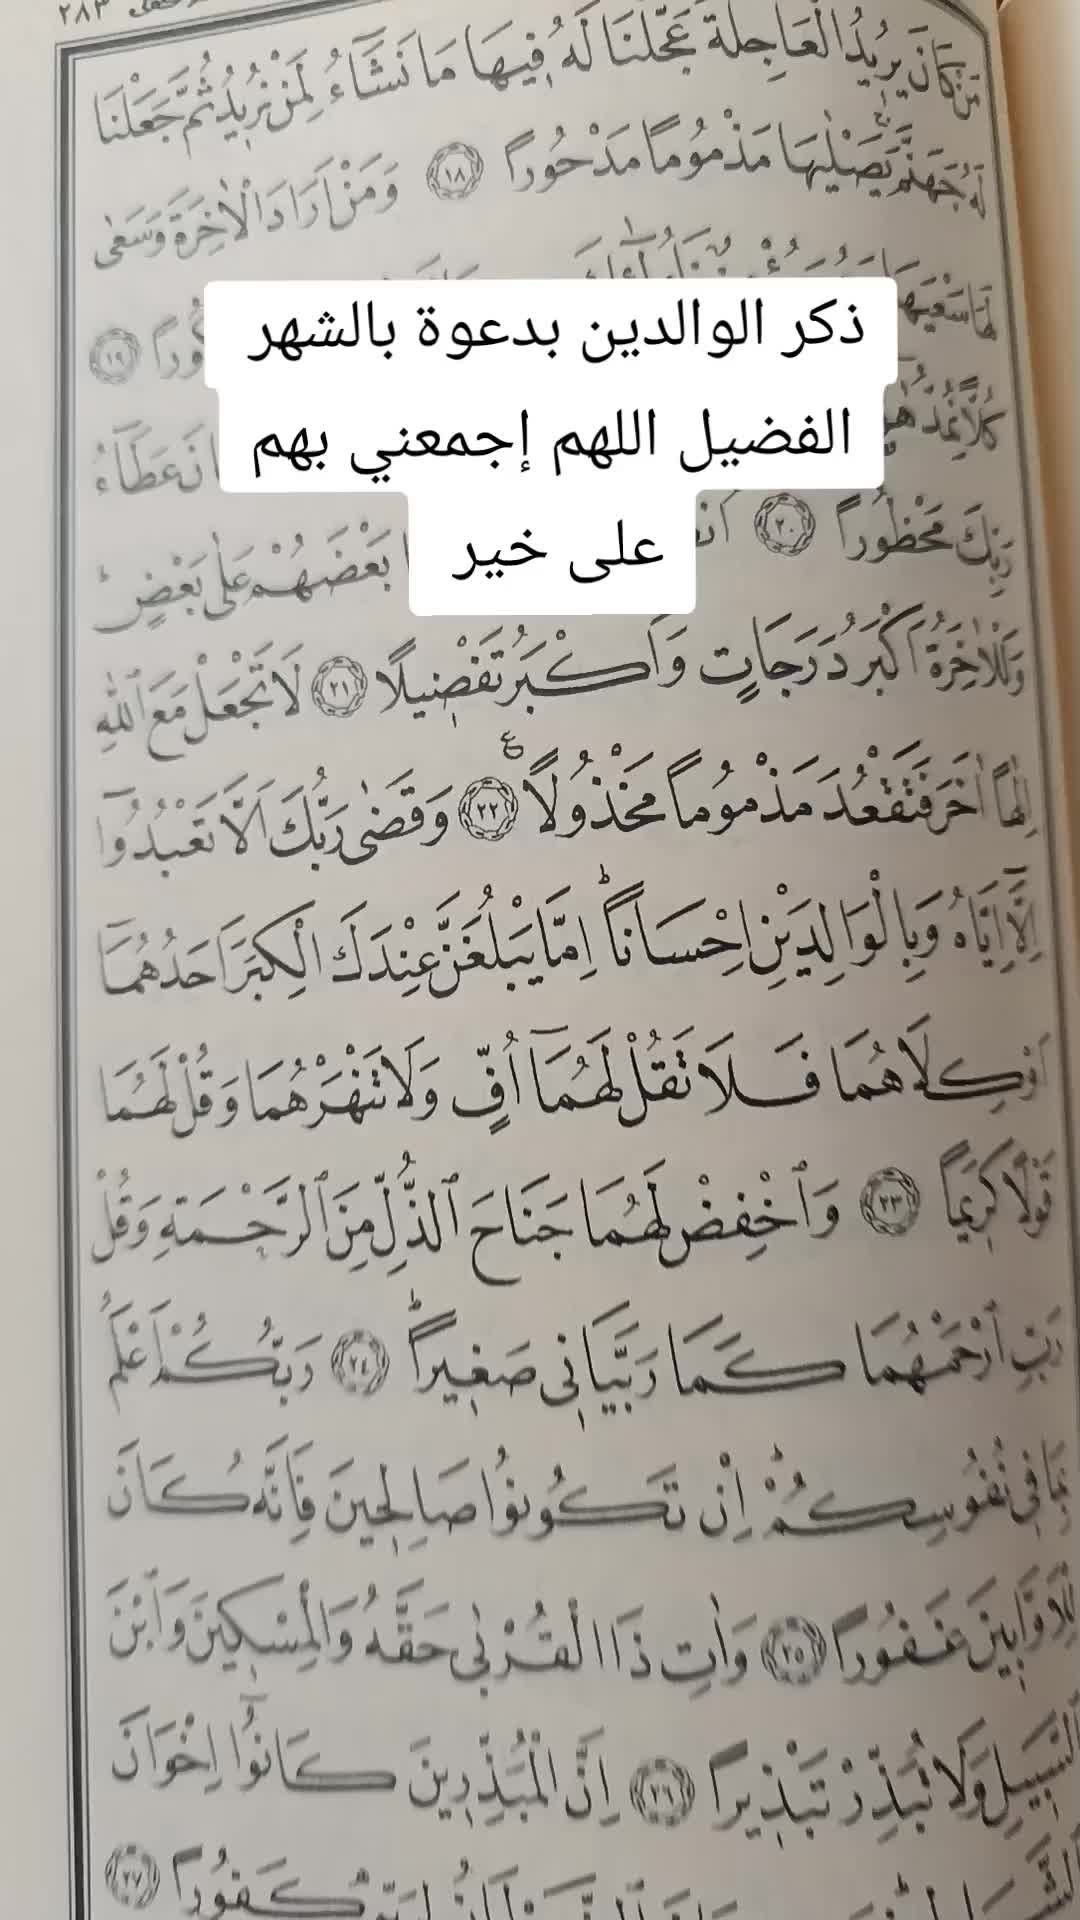 ٢٨٣
مَنْ كَانَ يُرِيدُ الْعَاجِلَةَ عَجَّلْنَا لَهُ فِيهَا مَا نَشَٓاءُ لِمَنْ نُرِيدُ ثُمَّ جَعَلْنَا
لَهُ جَهَنَّمَ يَصْلٰيهَا مَذْمُومًا مَدْحُورًا ﴿١٨﴾ وَمَنْ اَرَادَ الْاٰخِرَةَ وَسَعٰى
لَهَا سَعْيَهَا
﴿١٩﴾
ذكر الوالدين بدعوة بالشهر
الفضيل اللهم إجمعني بهم
على خير
كُلًّا نُمِدُّ عَطَٓاءُ
رَبِّكَ مَحْظُورًا ﴿٢٠﴾ بَعْضَهُمْ عَلٰى بَعْضٍ
وَلَلْاٰخِرَةُ اَكْبَرُ دَرَجَاتٍ وَاَكْبَرُ تَفْضِيلًا ﴿٢١﴾ لَا تَجْعَلْ مَعَ اللّٰهِ
اِلٰهًا اٰخَرَ فَتَقْعُدَ مَذْمُومًا مَخْذُولًا ﴿٢٢﴾ ع وَقَضٰى رَبُّكَ اَلَّا تَعْبُدُٓوا
اِلَّٓا اِيَّاهُ وَبِالْوَالِدَيْنِ اِحْسَانًاۜ اِمَّا يَبْلُغَنَّ عِنْدَكَ الْكِبَرَ اَحَدُهُمَٓا
اَوْ كِلَاهُمَا فَلَا تَقُلْ لَهُمَٓا اُفٍّ وَلَا تَنْهَرْهُمَا وَقُلْ لَهُمَا
قَوْلًا كَرِيمًا ﴿٢٣﴾ وَاخْفِضْ لَهُمَا جَنَاحَ الذُّلِّ مِنَ الرَّحْمَةِ وَقُلْ
رَبِّ ارْحَمْهُمَا كَمَا رَبَّيَانِي صَغِيرًاۜ ﴿٢٤﴾ رَبُّكُمْ اَعْلَمُ
بِمَا فِي نُفُوسِكُمْۜ اِنْ تَكُونُوا صَالِحِينَ فَاِنَّهُ كَانَ
لِلْاَوَّابِينَ غَفُورًا ﴿٢٥﴾ وَاٰتِ ذَا الْقُرْبٰى حَقَّهُ وَالْمِسْكِينَ وَابْنَ
السَّبِيلِ وَلَا تُبَذِّرْ تَبْذِيرًا ﴿٢٦﴾ اِنَّ الْمُبَذِّرِينَ كَانُٓوا اِخْوَانَ
كَفُورًا ﴿٢٧﴾